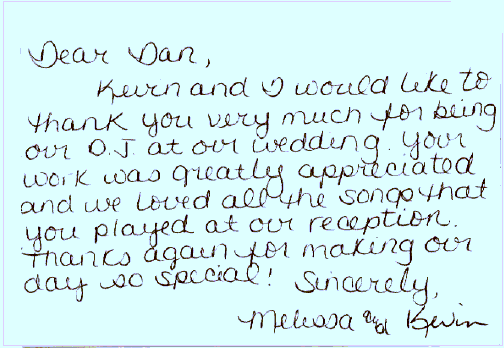 Dear Dan,
Kevin and I would like to
thank you very much for being
our D.J. at our wedding. Your
work was greatly appreciated
and we loved all the songs that
you played at our reception.
Thanks again for making our
day so special! Sincerely,
Melissa and Kevin